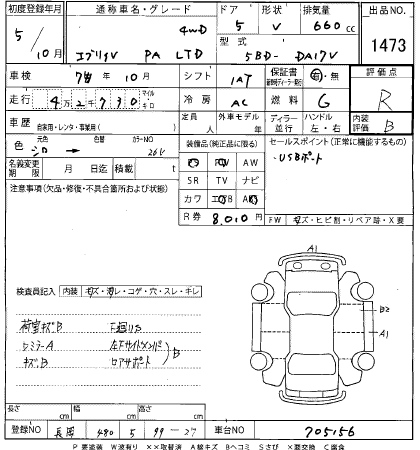 初度登録年月 通称車名・グレード ドア 形状 排気量 出品NO
5/10月 エブリイV PA LTD 4WD 5 V 660cc 1473
型式 5BD-DA17V
車検 7年10月 シフト IAT 保証書 有・無 評価点
走行 4万2千730 マイル キロ 冷房 AC 燃料 G R
車歴 自家用・レンタ・事業用( ) 定員 人 外車モデル 年 ディーラー 並行 ハンドル 左・右 内装評価 B
色 元色 シロ → 色替 カラーNO 26U
装備品(純正品に限る) セールスポイント(正常に機能するもの)
PS PW AW ・USBポート
名義変更期限 月 日迄 積載 t SR TV ナビ
注意事項(欠品・修復・不具合箇所および状態) カワ エアB AB
R券 8,010円 FW キズ・ヒビ割・リペア跡・X要
A1
検査員記入 内装 キズ・汚レ・コゲ・穴・スレ・キレ
荷室キズB 下廻りS B2
ミラーA 左下サイドメンバー A1
キズB リアサポート B
長さ cm 幅 cm 高さ cm
登録NO 長岡 480 う 99-27 車台NO 705156
P要塗装 W波有り ××取替済 A線キズ Bヘコミ Sさび ×要交換 C腐食